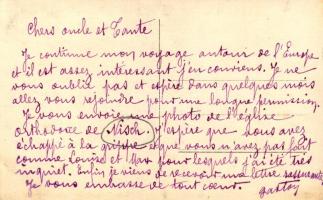 Chers oncle et Tante
Je continue mon voyage autour de l'Europe
et il est assez intéressant j'en conviens. Je ne
vous oublie pas et espère dans quelques mois
allez vous rejoindre pour une longue permission.
Je vous envoie une photo de l'église
orthodoxe de Nisch. J'espère que vous avez
échappé à la grippe et que vous n'avez pas fait
comme Louise et Max pour lesquels j'ai été très
inquiet. Enfin je viens de recevoir une lettre rassurante
Je vous embrasse de tout cœur.